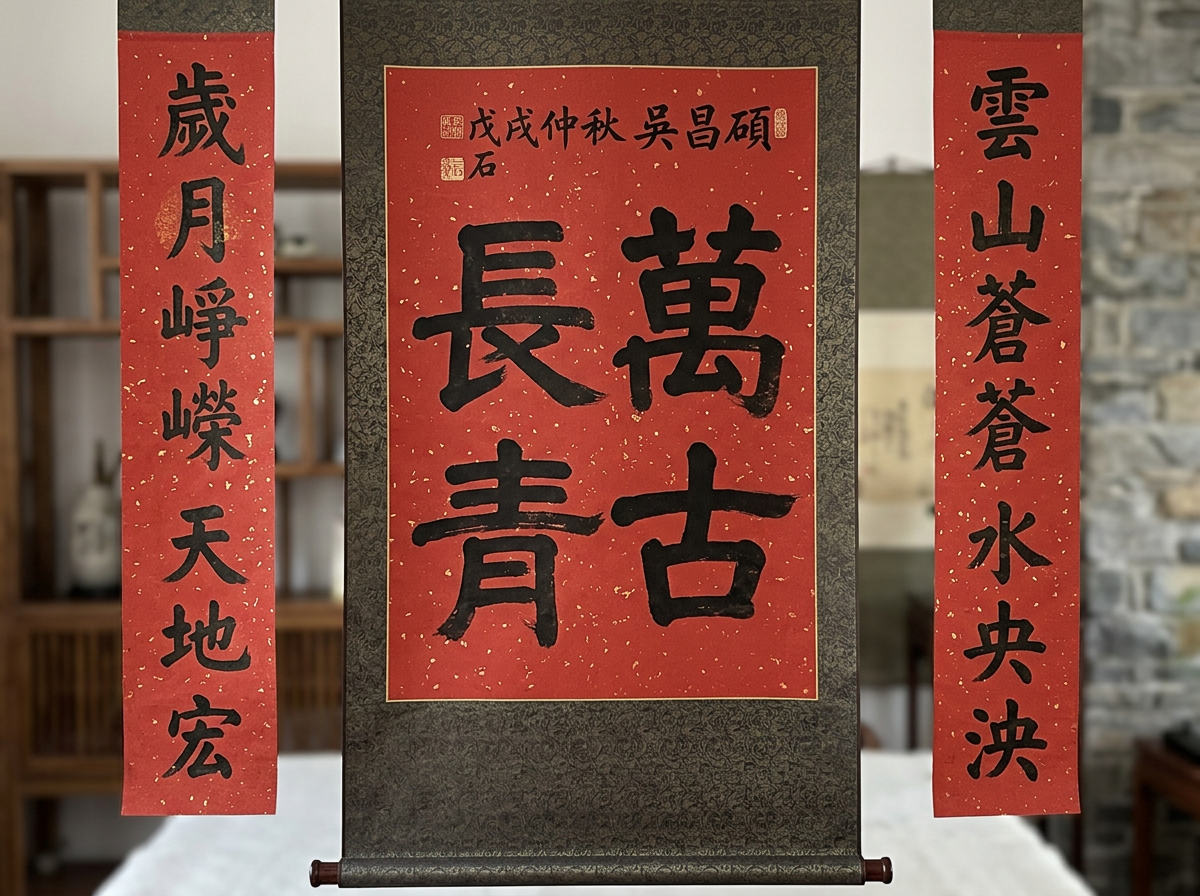 雲山蒼蒼水央泱
戊戌仲秋吳昌碩
石
萬古
長青
歲月崢嶸天地宏